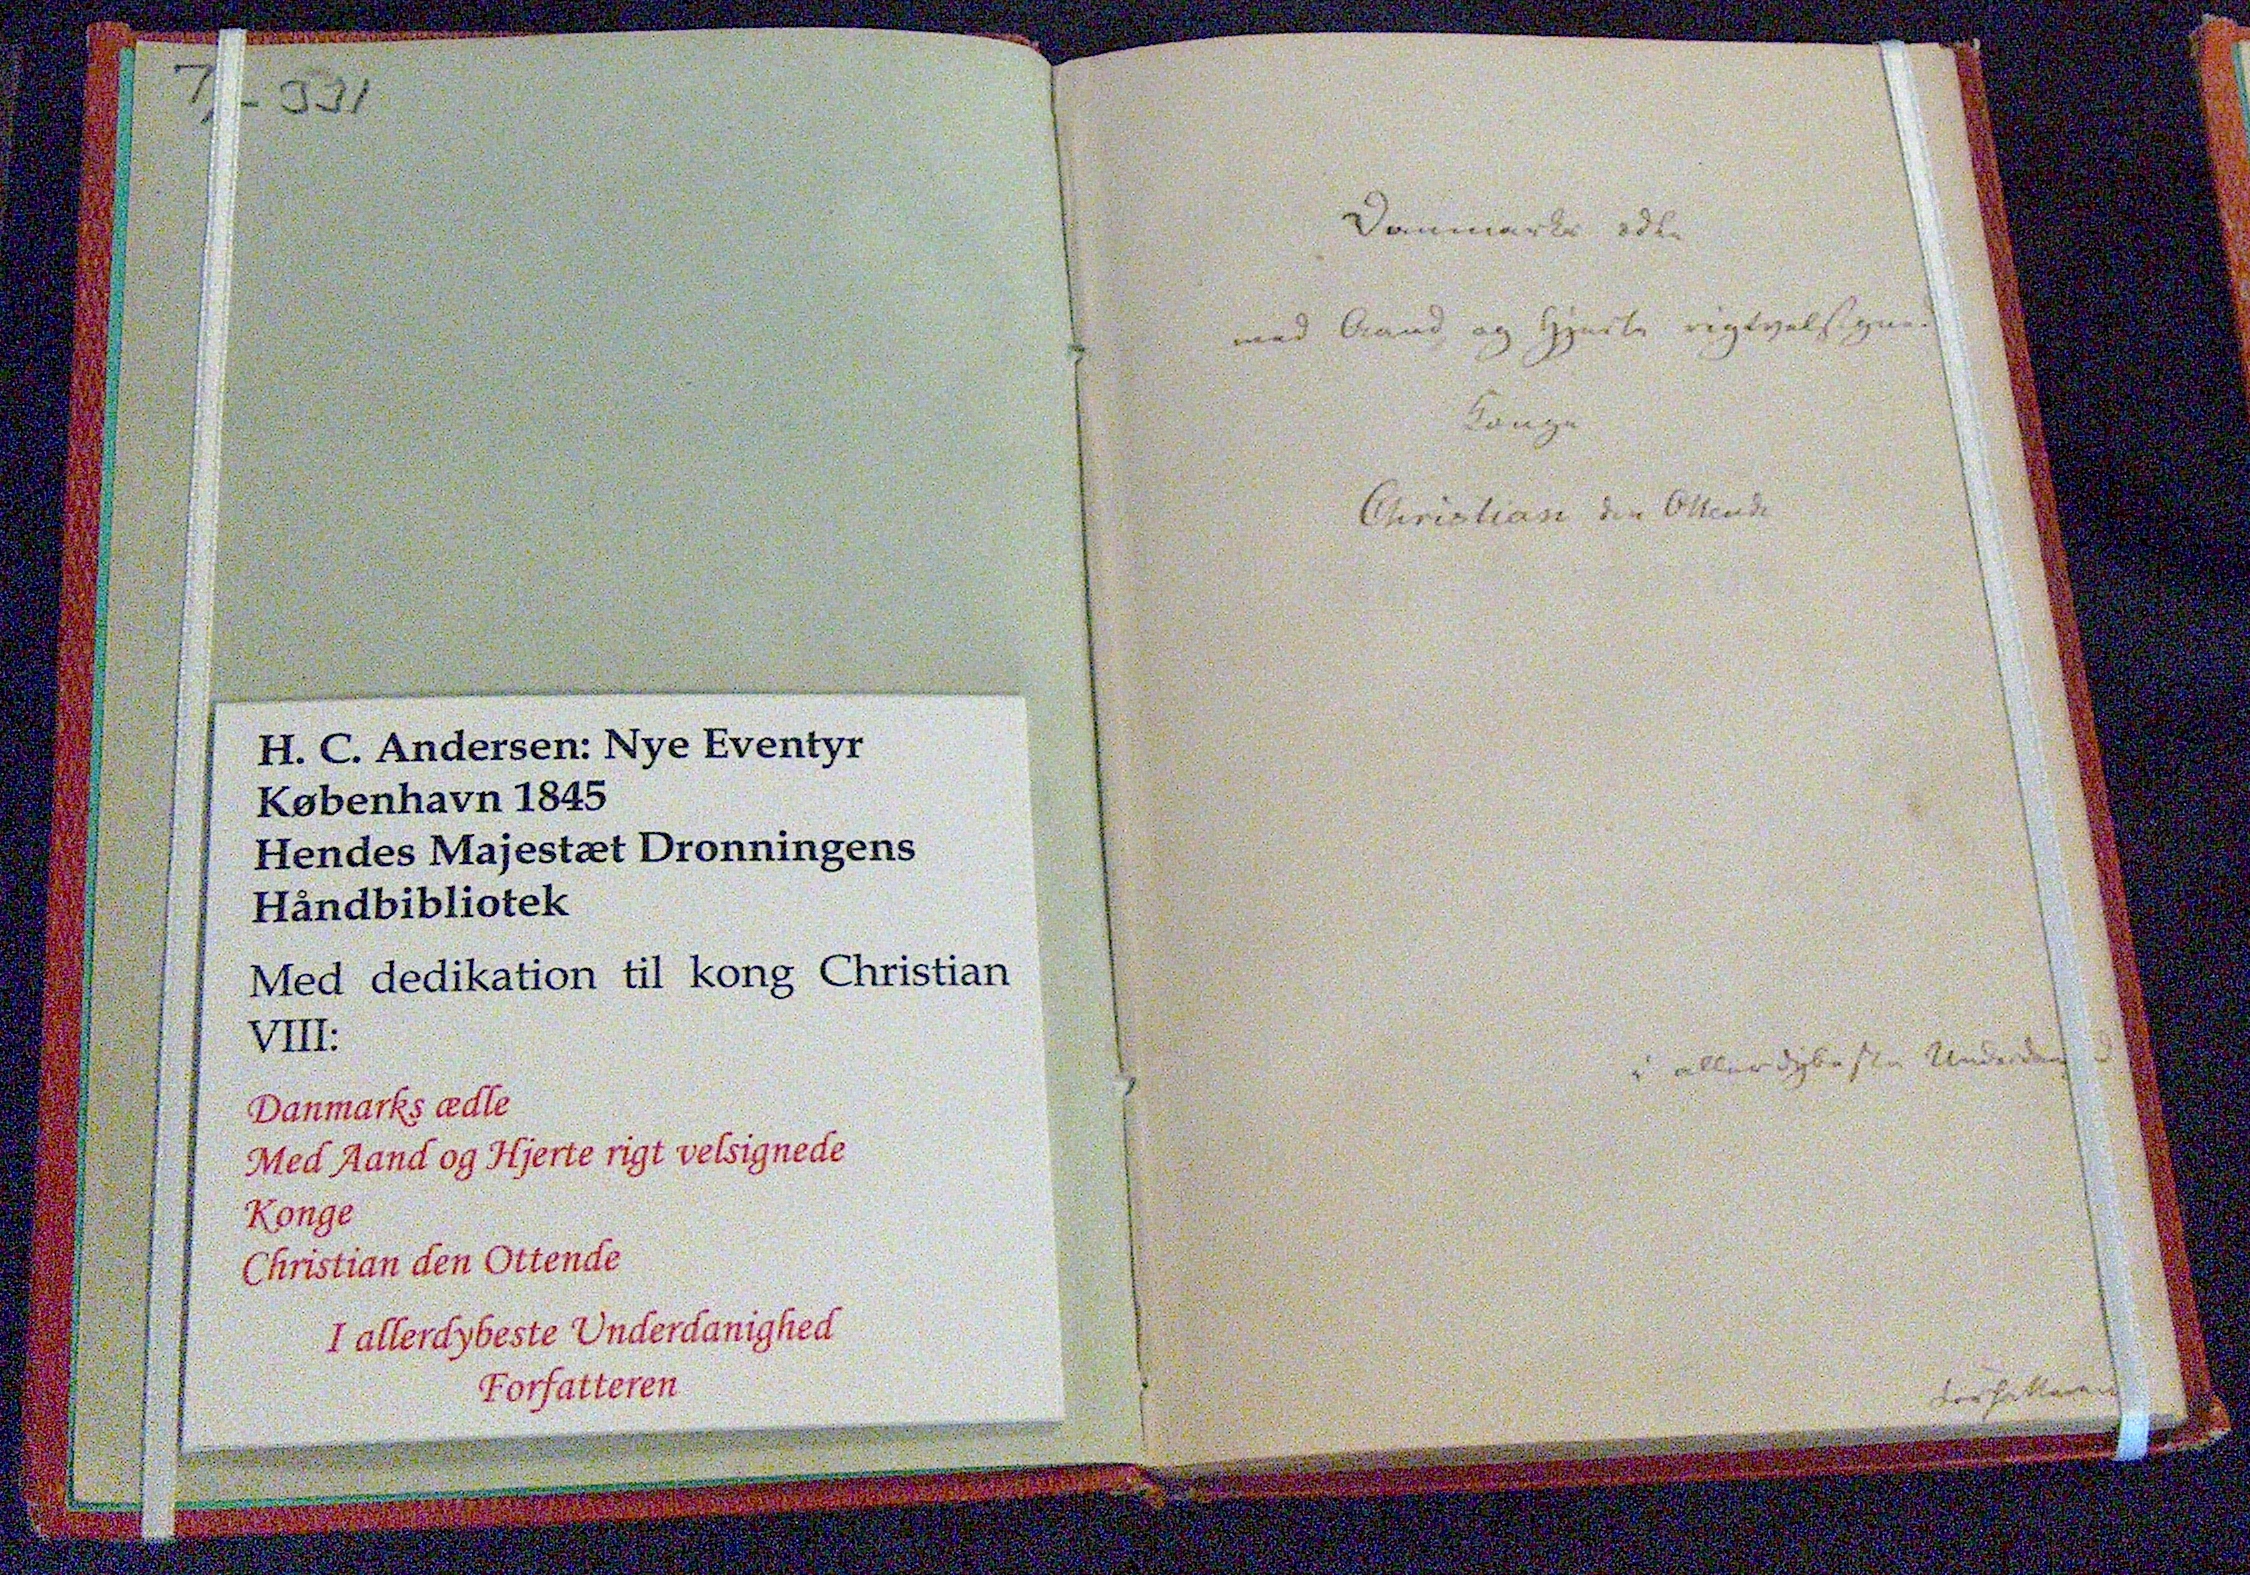 H. C. Andersen: Nye Eventyr
København 1845
Hendes Majestæt Dronningens
Håndbibliotek
Med dedikation til kong Christian
VIII:
Danmarks ædle
Med Aand og Hjerte rigt velsignede
Konge
Christian den Ottende
I allerdybeste Underdanighed
Forfatteren
Danmarks ædle
med Aand og Hjerte rigtvelsigne
Konge
Christian den Ottende
i allerdybeste
Forfatteren